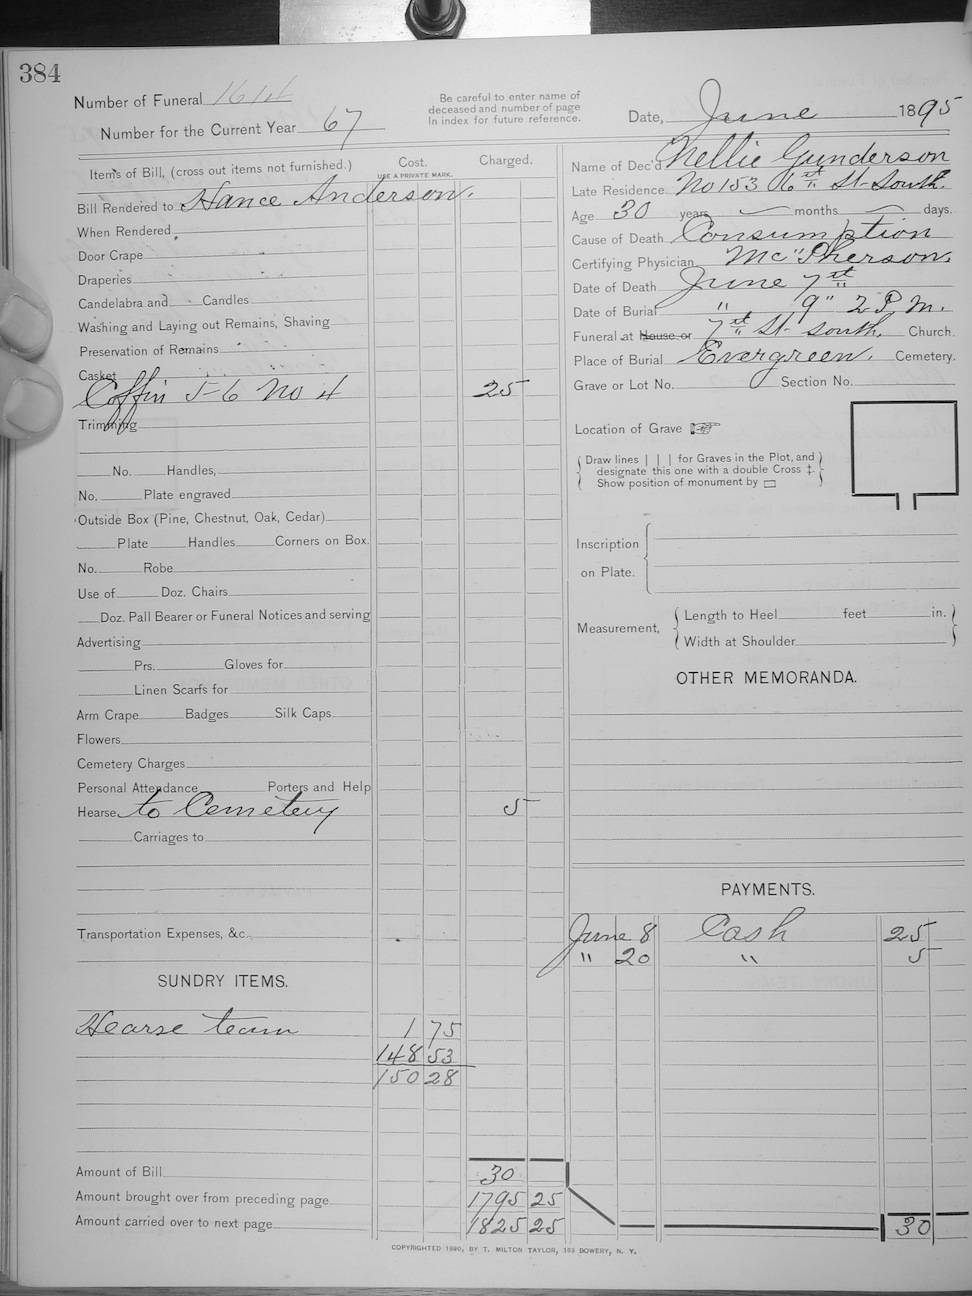 384
Number of Funeral 1614
Number for the Current Year 67
Be careful to enter name of
deceased and number of page
In index for future reference.
Date, June 1895
Items of Bill, (cross out items not furnished.) Cost. Charged.
USE A PRIVATE MARK.
Bill Rendered to Hance Anderson.
When Rendered
Door Crape
Draperies
Candelabra and Candles
Washing and Laying out Remains, Shaving
Preservation of Remains
Casket
Coffin 5-6 No 4 25
Trimming
No. Handles,
No. Plate engraved
Outside Box (Pine, Chestnut, Oak, Cedar)
Plate Handles Corners on Box.
No. Robe
Use of Doz. Chairs
Doz. Pall Bearer or Funeral Notices and serving
Advertising
Prs. Gloves for
Linen Scarfs for
Arm Crape Badges Silk Caps
Flowers
Cemetery Charges
Personal Attendance Porters and Help
Hearse to Cemetery 5
Carriages to
Transportation Expenses, &c.
SUNDRY ITEMS.
Hearse team 1 75
148 53
150 28
Amount of Bill 30
Amount brought over from preceding page 1795 25
Amount carried over to next page 1825 25
Name of Dec'd Nellie Gunderson
Late Residence No 153 6 st St South
Age 30 years months days.
Cause of Death Consumption
Certifying Physician Mc"Pherson
Date of Death June 7 st
Date of Burial " 9" 2 P M.
Funeral at House or 7 st St South, Church.
Place of Burial Evergreen. Cemetery.
Grave or Lot No. Section No.
Location of Grave ☞
Draw lines | | | for Graves in the Plot, and
designate this one with a double Cross ‡.
Show position of monument by ▭
Inscription
on Plate.
Measurement,
Length to Heel feet in.
Width at Shoulder
OTHER MEMORANDA.
PAYMENTS.
June 8 Cash 25
" 20 " 5
30
COPYRIGHTED 1890, BY T. MILTON TAYLOR, 163 BOWERY, N. Y.